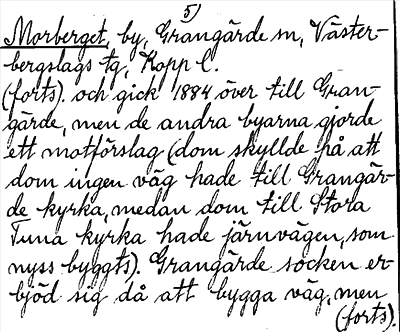 5)
Morberget, by, Grangärde sn, Väster-
bergslags tg, Kopp l.
(forts). och gick 1884 över till Gran-
gärde, men de andra byarna gjorde
ett motförslag (dom skyllde på att
dom ingen väg hade till Grangär-
de kyrka, medan dom till Stora
Tuna kyrka hade järnvägen, som
nyss byggts). Grangärde socken er-
bjöd sig då att bygga väg, men
(forts).